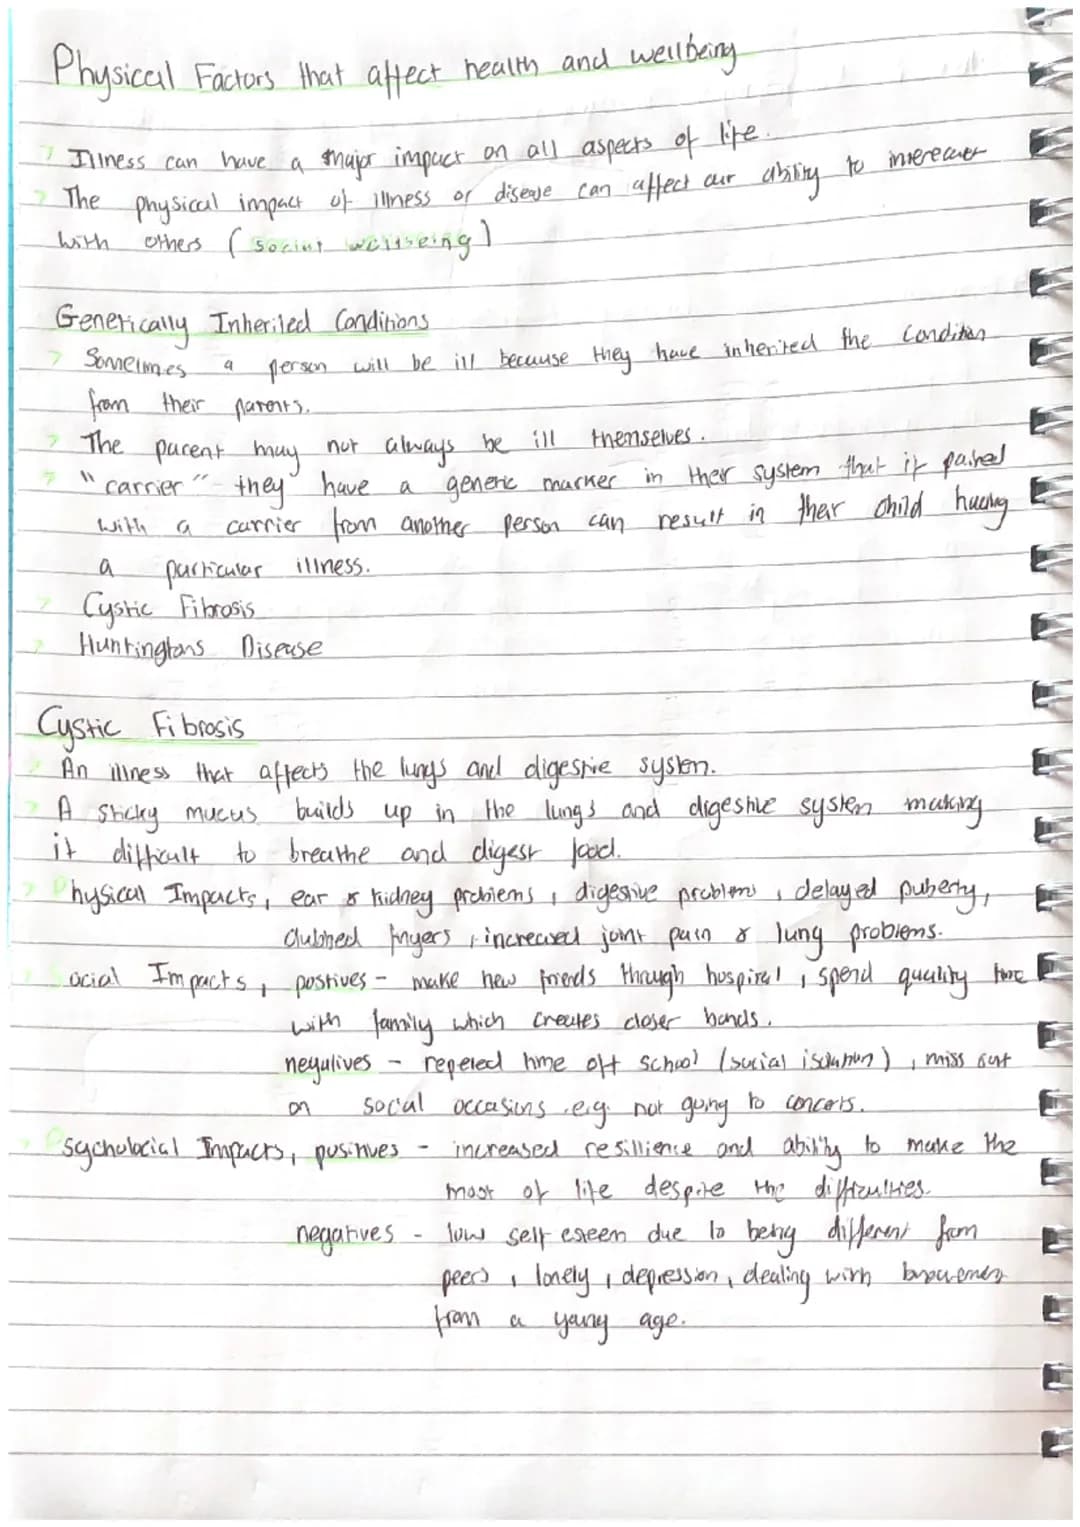 Physical Factors that affect health and wellbeing
> Illness can have a major impact on all aspects of life.
> The physical impact of illness or disease can affect our ability to interact
with others (social wellbeing)
Generically Inherited Conditions
> Sometimes a person will be ill because they have inherited the condition
from their parents.
> The parent may not always be ill themselves.
> "carrier" - they have a generic marker in their system that if paired
with a carrier from another person can result in their child having
a particular illness.
> Cystic Fibrosis
> Huntingtons Disease
Cystic Fibrosis
> An illness that affects the lungs and digestive system.
> A sticky mucus builds up in the lungs and digestive system making
it difficult to breathe and digest food.
> Physical Impacts, ear & kidney problems, digestive problems, delayed puberty,
clubbed fingers, increased joint pain & lung problems.
> Social Impacts, postives - make new friends through hospital, spend quality time
with family which creates closer bonds.
negatives - repeted time off school (social isolation), miss out
on social occasions e.g. not going to concerts.
> Psycholocial Impacts, positives - increased resillience and ability to make the
most of life despite the difficulties.
negatives - low self esteem due to being different from
peers, lonely, depression, dealing with
from a young age.